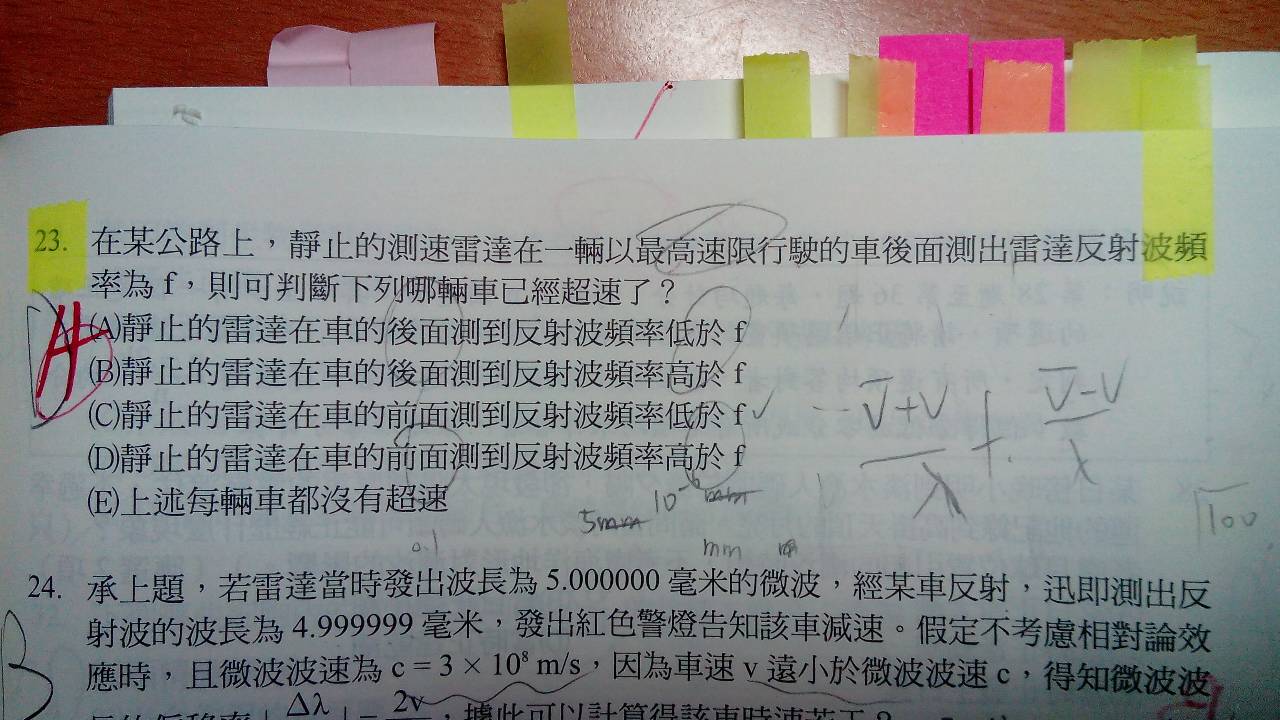 23. 在某公路上，靜止的測速雷達在一輛以最高速限行駛的車後面測出雷達反射波頻
率為 f，則可判斷下列哪輛車已經超速了？
(A)靜止的雷達在車的後面測到反射波頻率低於 f
(B)靜止的雷達在車的後面測到反射波頻率高於 f
(C)靜止的雷達在車的前面測到反射波頻率低於 f
(D)靜止的雷達在車的前面測到反射波頻率高於 f
(E)上述每輛車都沒有超速
V+V
λ
V-V
λ
5mm
mm
0.1
√100
24. 承上題，若雷達當時發出波長為 5.000000 毫米的微波，經某車反射，迅即測出反
射波的波長為 4.999999 毫米，發出紅色警燈告知該車減速。假定不考慮相對論效
應時，且微波波速為 c = 3 × 10⁸ m/s，因為車速 v 遠小於微波波速 c，得知微波波
B
長的偏移率 | Δλ | = 2v ，據此可以計算得該車時速若干？